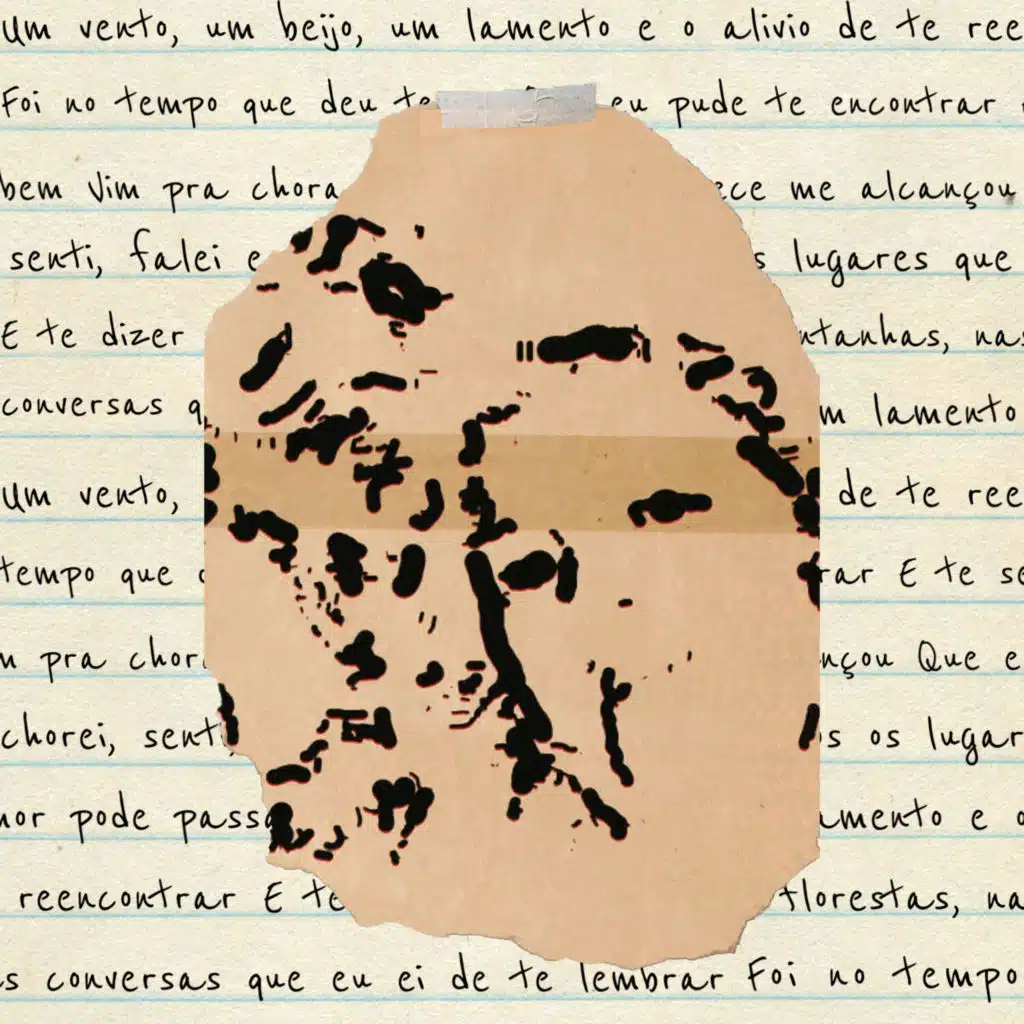 um vento, um beijo, um lamento e o alivio de te ree
Foi no tempo que deu te eu pude te encontrar
bem Vim pra chora ece me alcançou
senti, falei e s lugares que
E te dizer ntanhas, nas
conversas q m lamento
um vento, de te ree
tempo que rar E te se
pra chor nçou Que e
chorei, sent s os lugar
or pode pass amento e o
reencontrar E te florestas, na
s conversas que eu ei de te lembrar Foi no tempo